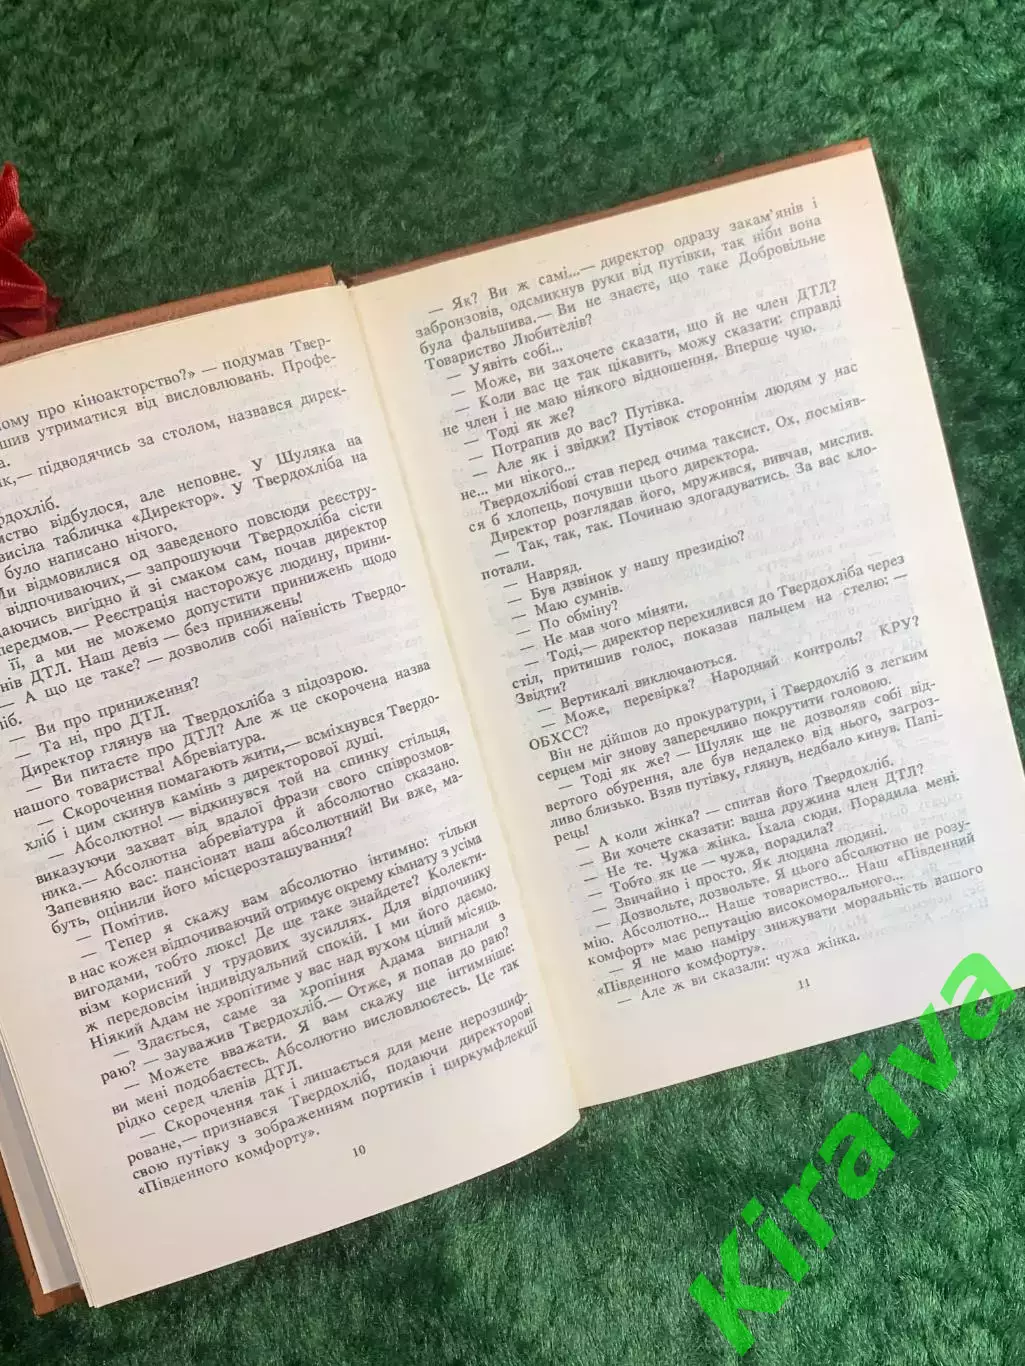 ому про кіноакторство?» — подумав Твер-
шив утриматися від висловлювань. Профе-
а.
як,— підводячись за столом, назвався дирек-
рдохліб.
мство відбулося, але неповне. У Шуляка на
висіла табличка «Директор». У Твердохліба на
було написано нічого.
Ми відмовилися од заведеного повсюди реєстру-
відпочиваючих,— запрошуючи Твердохліба сісти
аючись вигідно й зі смаком сам, почав директор
передмов.— Реєстрація насторожує людину, прини-
її, а ми не можемо допустити принижень щодо
нів ДТЛ. Наш девіз — без принижень!
— А що це таке? — дозволив собі наївність Твердо-
ліб.
— Ви про приниження?
— Та ні, про ДТЛ.
Директор глянув на Твердохліба з підозрою.
— Ви питаєте про ДТЛ? Але ж це скорочена назва
нашого товариства! Абревіатура.
— Скорочення помагають жити,— всміхнувся Твердо-
хліб і цим скинув камінь з директорової душі.
— Абсолютно! — відкинувся той на спинку стільця,
виказуючи захват від вдалої фрази свого співрозмов-
ника.— Абсолютна абревіатура й абсолютно сказано.
Запевняю вас: пансіонат наш абсолютний! Ви вже, ма-
буть, оцінили його місцерозташування?
— Помітив.
— Тепер я скажу вам абсолютно інтимно: тільки
в нас кожен відпочиваючий отримує окрему кімнату з усіма
вигодами, тобто люкс! Де ще таке знайдете? Колекти-
візм корисний у трудових зусиллях. Для відпочинку
ж передовсім індивідуальний спокій. І ми його даємо.
Ніякий Адам не хропітиме у вас над вухом цілий місяць.
— Здається, саме за хропіння Адама вигнали з
раю? — зауважив Твердохліб.— Отже, я попав до раю?
— Можете вважати. Я вам скажу ще інтимніше:
ви мені подобаєтесь. Абсолютно висловлюєтесь. Це так
рідко серед членів ДТЛ.
— Скорочення так і лишається для мене нерозшиф-
роване,— признався Твердохліб, подаючи директорові
свою путівку з зображенням портиків і циркумфлекції
«Південного комфорту».
10
— Як? Ви ж самі...— директор одразу закам’янів і
забронзовів, одсмикнув руки від путівки, так ніби вона
була фальшива.— Ви не знаєте, що таке Добровільне
Товариство Любителів?
— Уявіть собі...
— Може, ви захочете сказати, що й не член ДТЛ?
— Коли вас це так цікавить, можу сказати: справді
не член і не маю ніякого відношення. Вперше чую.
— Тоді як же?
— Потрапив до вас? Путівка.
— Але як і звідки? Путівок стороннім людям у нас
не... ми нікого...
Твердохлібові став перед очима таксист. Ох, посміяв-
ся б хлопець, почувши цього директора.
Директор розглядав його, мружився, вивчав, мислив.
— Так, так, так. Починаю здогадуватись. За вас кло-
потали.
— Навряд.
— Був дзвінок у нашу президію?
— Маю сумнів.
— По обміну?
— Не мав чого міняти.
— Тоді,— директор перехилився до Твердохліба через
стіл, притишив голос, показав пальцем на стелю: —
Звідти?
— Вертикалі виключаються.
— Може, перевірка? Народний контроль? КРУ?
ОБХСС?
Він не дійшов до прокуратури, і Твердохліб з легким
серцем міг знову заперечливо покрутити головою.
— Тоді як же? — Шуляк ще не дозволяв собі від-
вертого обурення, але був недалеко від нього, загроз-
ливо близько. Взяв путівку, глянув, недбало кинув. Папі-
рець!
— А коли жінка? — спитав його Твердохліб.
— Ви хочете сказати: ваша дружина член ДТЛ?
— Не те. Чужа жінка. Їхала сюди. Порадила мені.
— Тобто як це — чужа, порадила?
— Звичайно і просто. Як людина людині.
— Дозвольте, дозвольте. Я цього абсолютно не розу-
мію. Абсолютно... Наше товариство... Наш «Південний
комфорт» має репутацію високоморального...
— Я не маю наміру знижувати моральність вашого
«Південного комфорту».
— Але ж ви сказали: чужа жінка.
11
Kiraiva